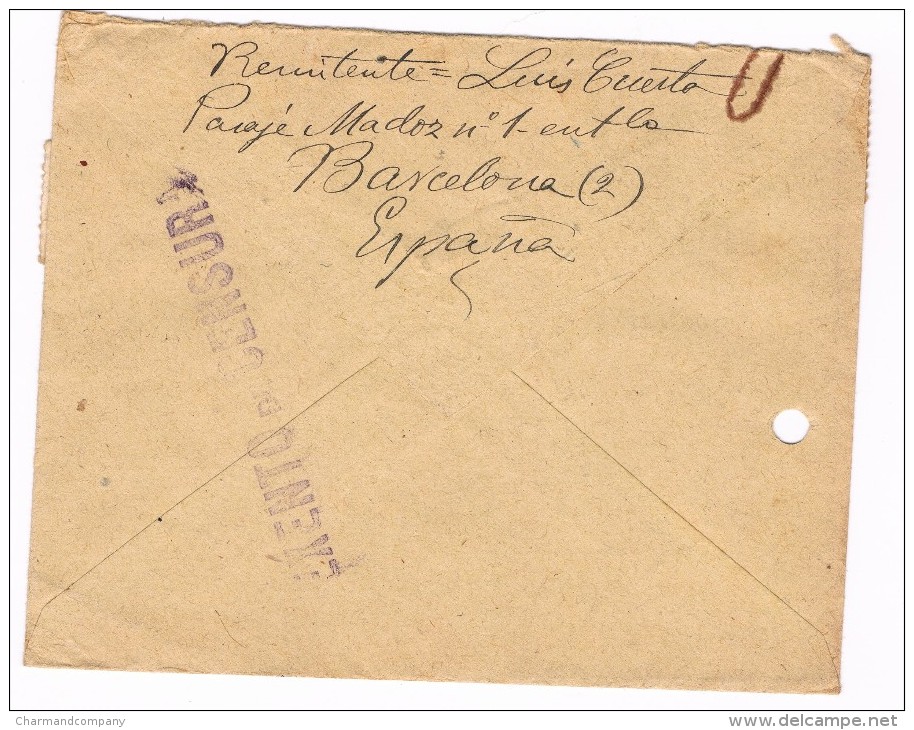 Remitente = Luis Cuesta
Pasaje Madoz nº 1- entlo
Barcelona (2)
España
EXENTO DE CENSURA
Charmandcompany
www.delcampe.net